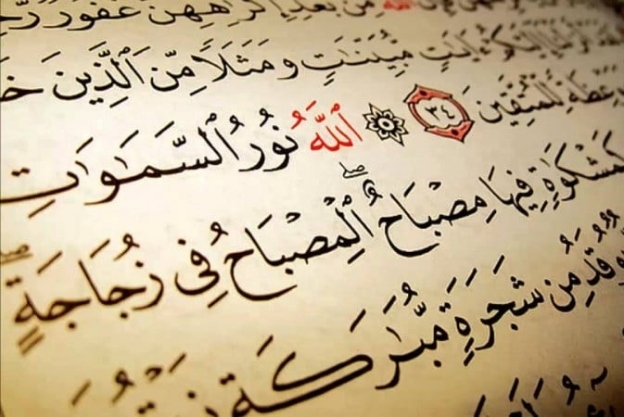 ٱللَّهَ مِنۢ بَعۡدِ إِكۡرَٰهِهِنَّ غَفُورٞ
ءَايَٰتٖ مُّبَيِّنَٰتٖ وَمَثَلٗا مِّنَ ٱلَّذِينَ
لِّلۡمُتَّقِينَ ٣٤ ۞ ٱللَّهُ نُورُ ٱلسَّمَٰوَٰتِ
كَمِشۡكَوٰةٖ فِيهَا مِصۡبَاحٌۖ ٱلۡمِصۡبَاحُ فِي زُجَاجَةٍۖ
يُوقَدُ مِن شَجَرَةٖ مُّبَٰرَكَةٖ